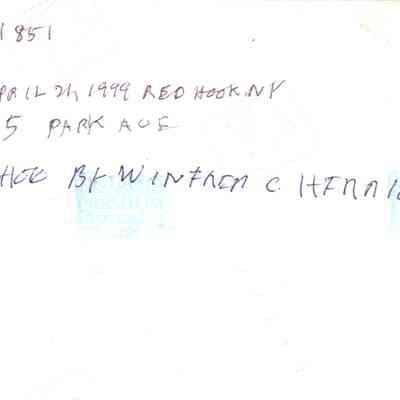 1851
PRIL 21, 1999 RED HOOK. NY
5 PARK AVE
BY WINFRED C. HERRI